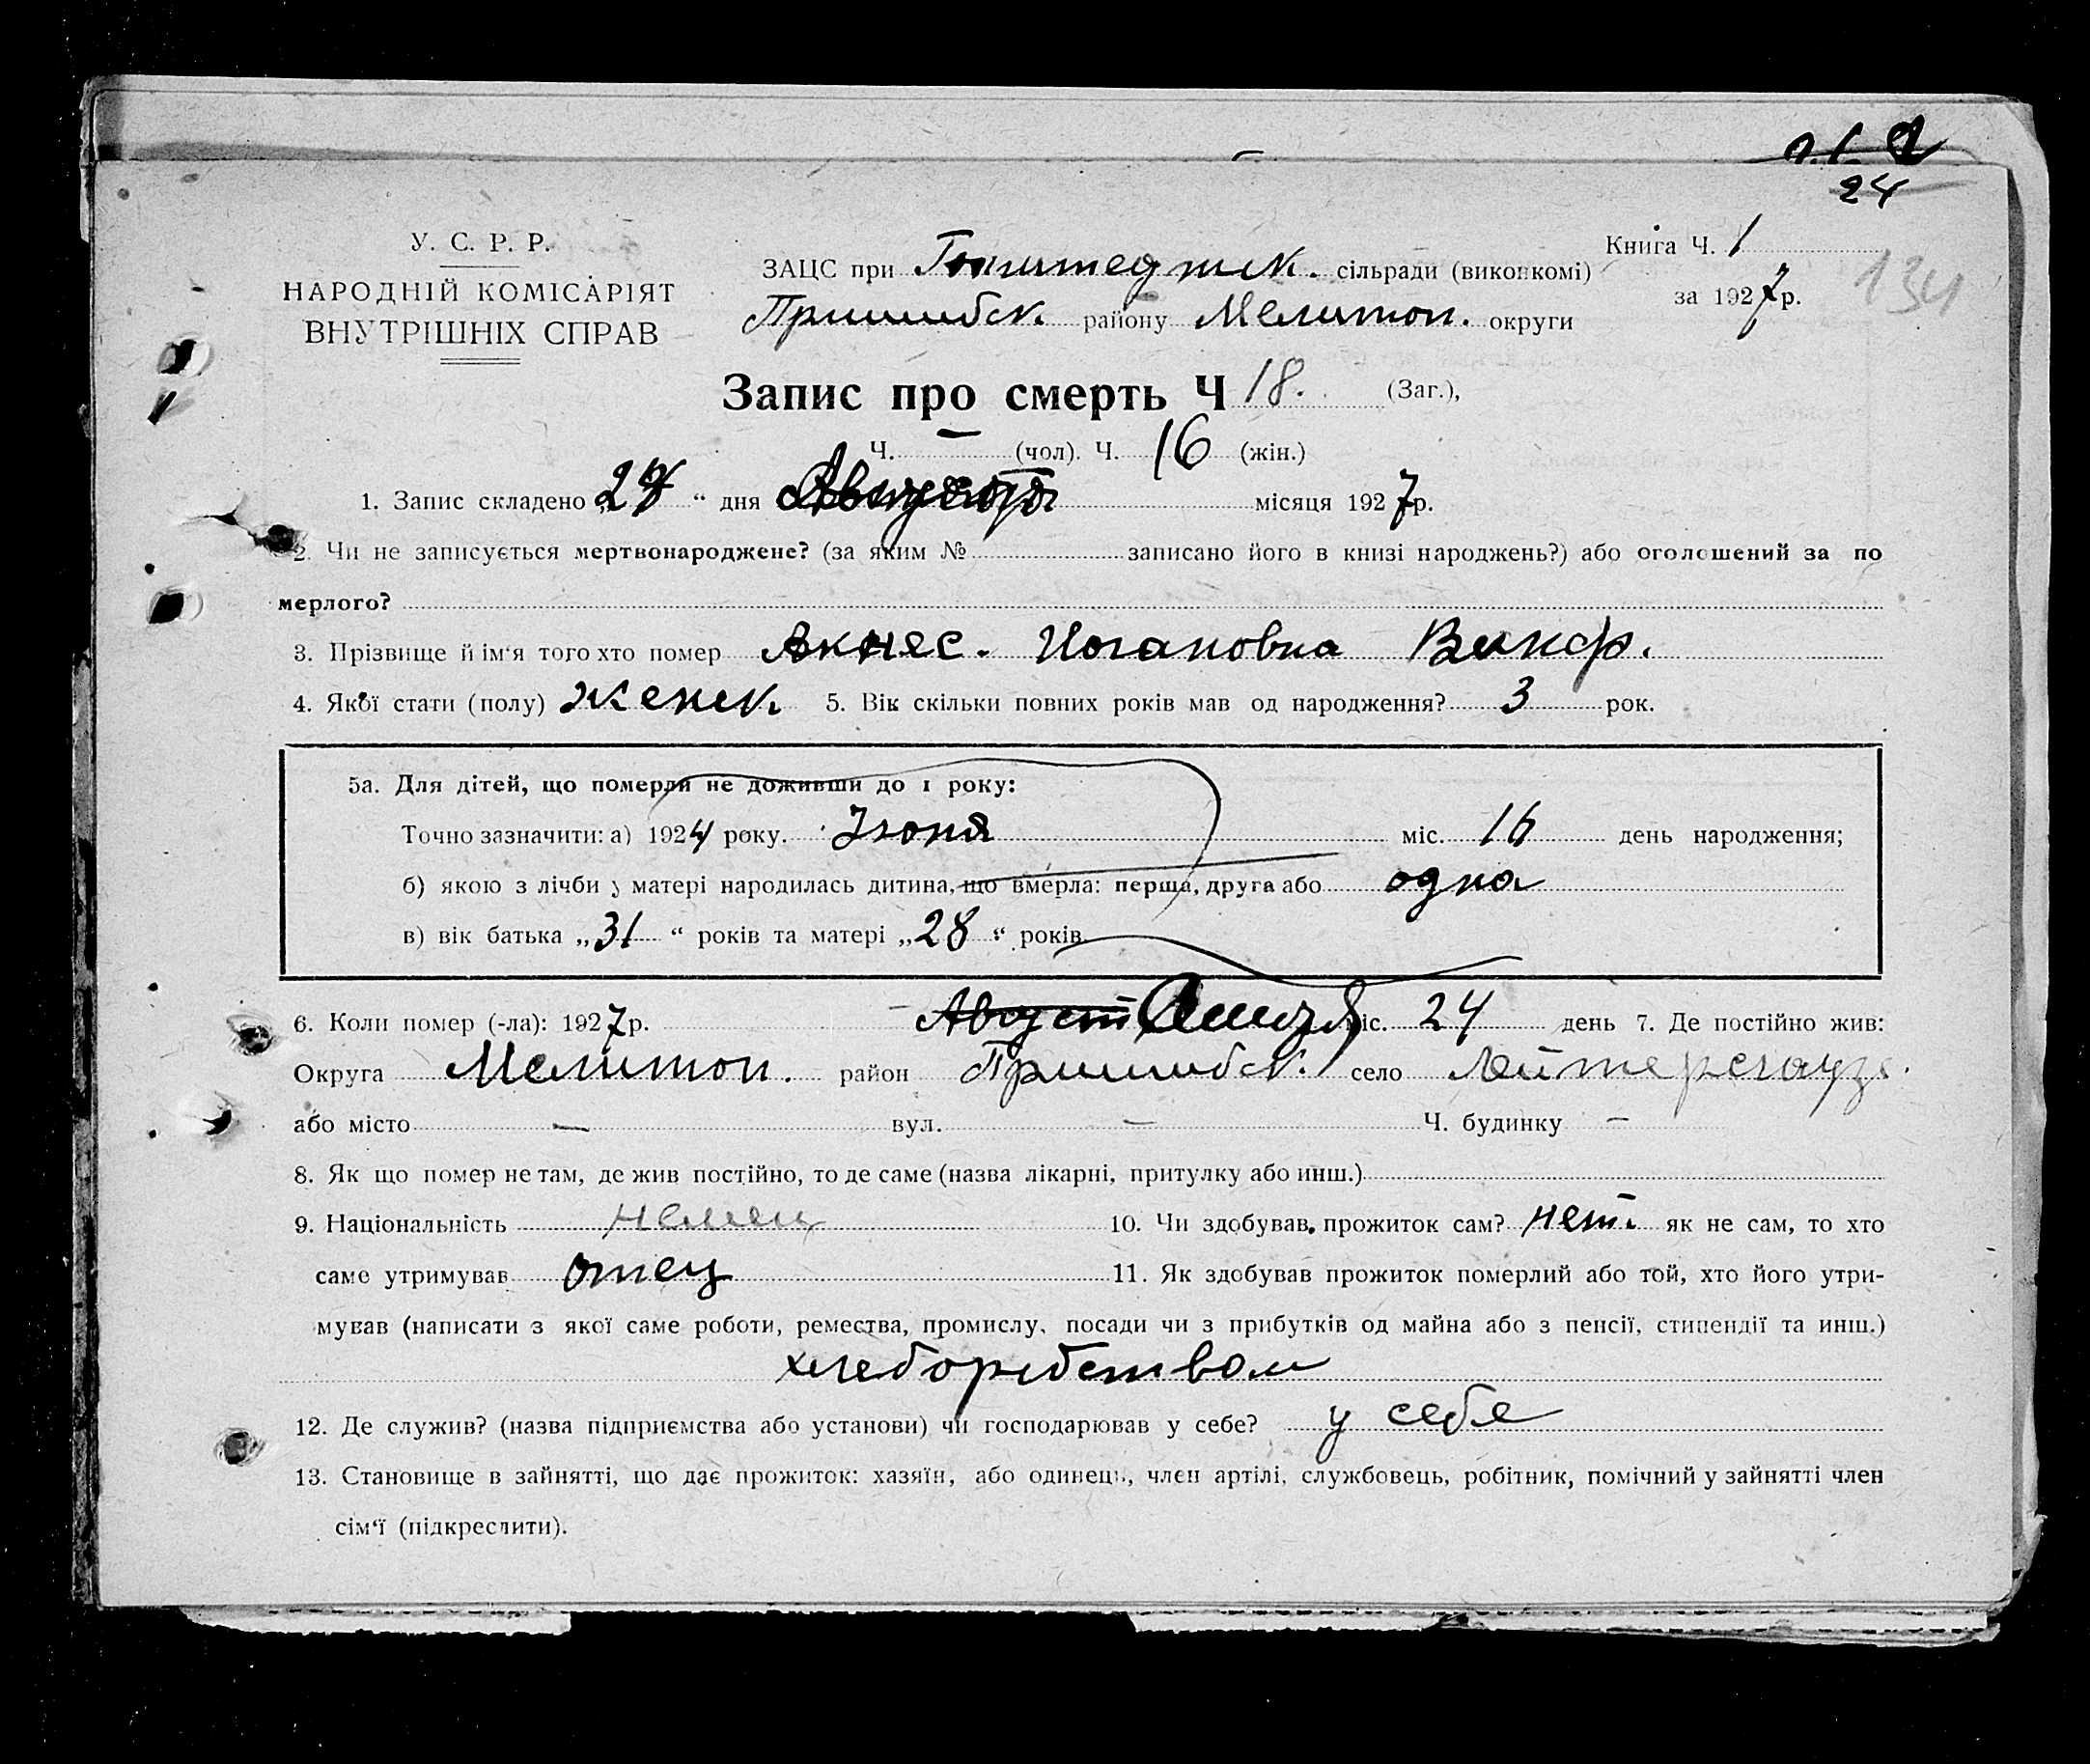 24
У. С. Р. Р.
НАРОДНІЙ КОМІСАРІЯТ
ВНУТРІШНІХ СПРАВ
Книга Ч. 1
за 1927 р.
134
ЗАЦС при сільради (виконкомі)
Пришибск. району Мелитоп. округи
Запис про смерть Ч 18. (Заг.),
Ч. — (чол). Ч. 16 (жін.)
1. Запис складено „ “ дня місяця 1927 р.
2. Чи не записується мертвонароджене? (за яким № записано його в книзі народжень?) або оголошений за по
мерлого?
3. Прізвище й ім‘я того хто помер Акнес. Иогановна
4. Якої стати (полу) женск. 5. Вік скільки повних років мав од народження? 3 рок.
5а. Для дітей, що померли не доживши до 1 року:
Точно зазначити: а) 1924 року. Июня міс. 16 день народження;
б) якою з лічби у матері народилась дитина, що вмерла: перша, друга або одна
в) вік батька „31“ років та матері „28“ років.
6. Коли помер (-ла): 1927 р. Август міс. 24 день 7. Де постійно жив:
Округа Мелитоп. район Пришибск. село Лейтерсгаузе.
або місто — вул. — Ч. будинку —
8. Як що помер не там, де жив постійно, то де саме (назва лікарні, притулку або инш.)
9. Національність немец 10. Чи здобував прожиток сам? нет. як не сам, то хто
саме утримував отец 11. Як здобував прожиток померлий або той, хто його утри-
мував (написати з якої саме роботи, ремества, промислу, посади чи з прибутків од майна або з пенсії, стипендії та инш.)
хлеборобством
12. Де служив? (назва підприємства або установи) чи господарював у себе? у себе
13. Становище в зайнятті, що дає прожиток: хазяїн, або одинець, член артілі, службовець, робітник, помічний у зайнятті член
сім‘ї (підкреслити).